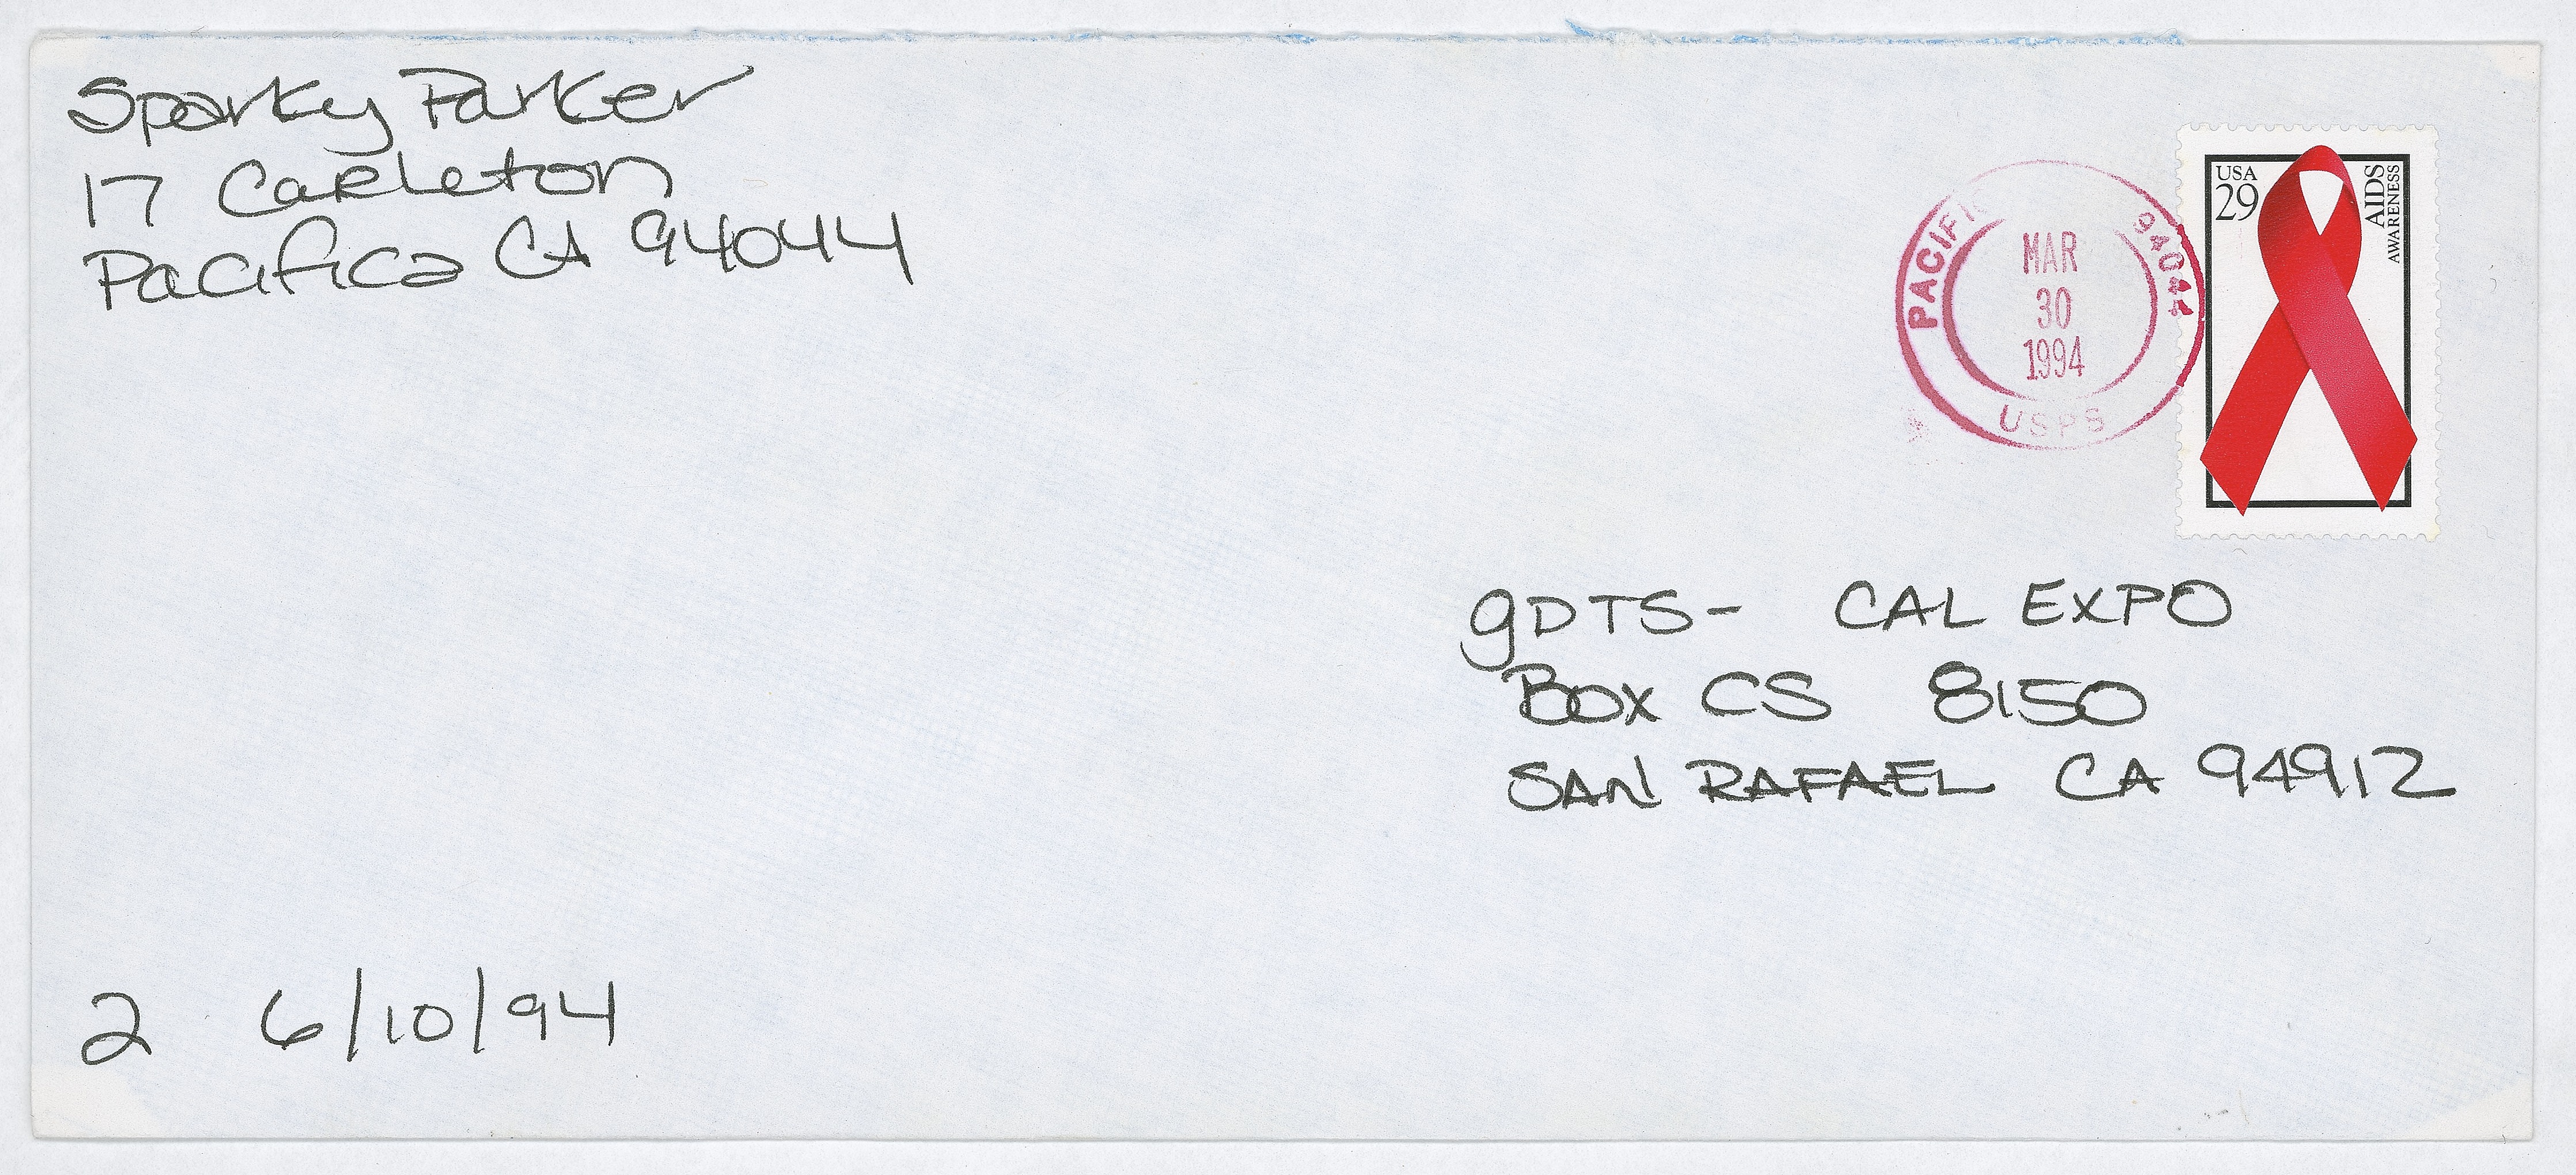 Sparky Parker
17 Carleton
Pacifica CA 94044
PACIFIC 94044
MAR
30
1994
USPS
USA
29
AIDS
AWARENESS
gDTS- CAL EXPO
BOX CS 8150
SAN RAFAEL CA 94912
2 6/10/94